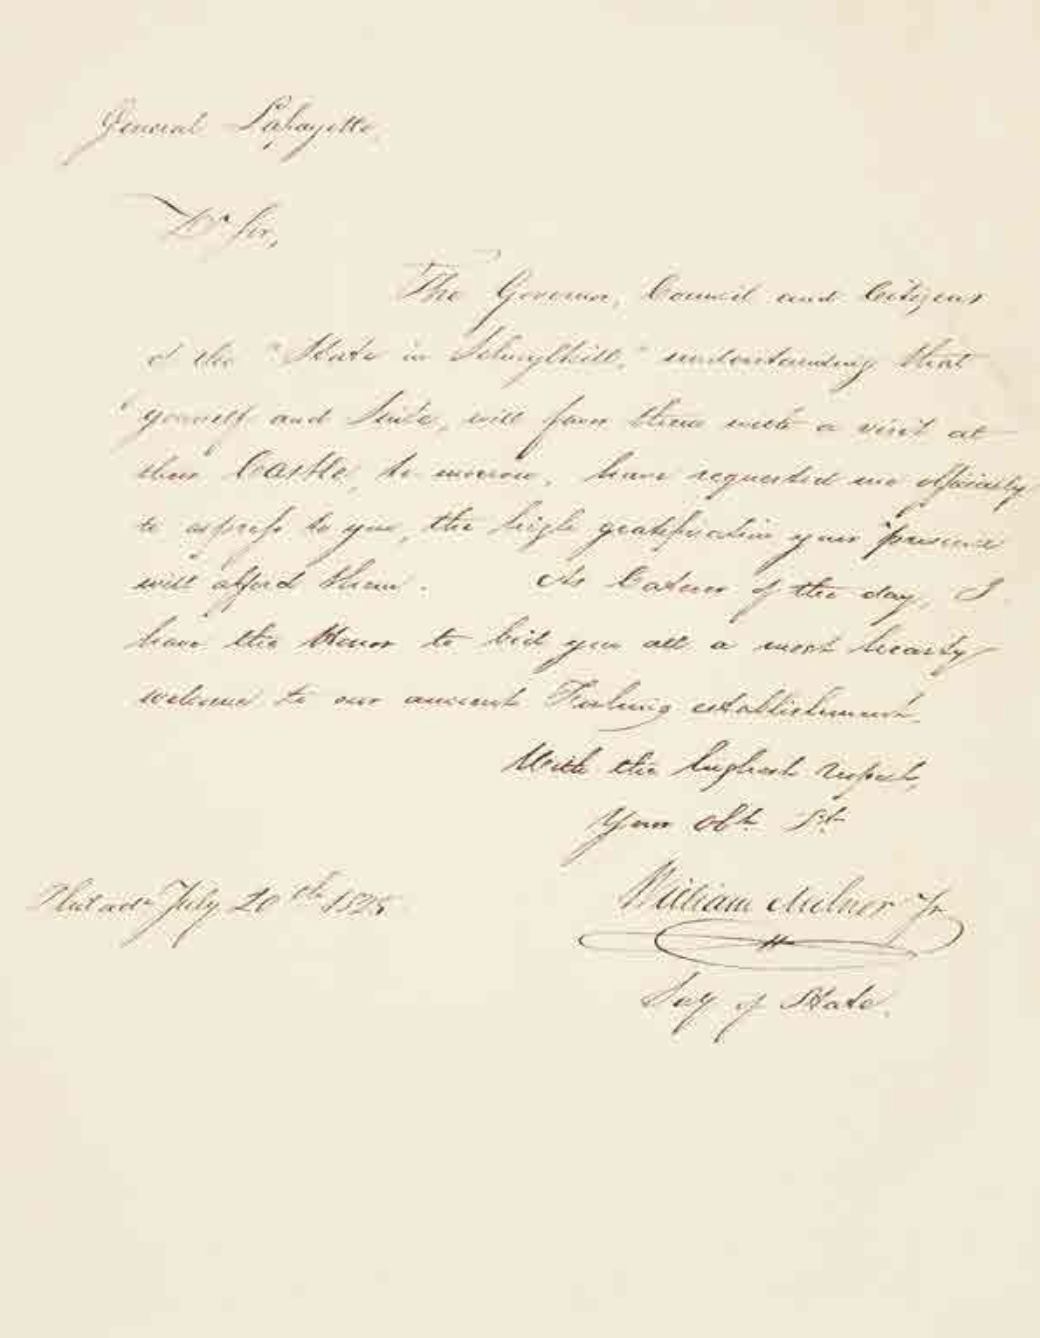 General Lafayette
Dr Sir,
The Governor, Council and Citizens
of the "State in Schuylkill," understanding that
yourself and Suite, will favor them with a visit at
their Castle, to-morrow, have requested me officially
to express to you, the high gratification your presence
will afford them. As Caterer of the day, I
have the Honor to bid you all a most hearty
welcome to our ancient Fishing establishment.
With the highest respect,
Your Obt. St.
William Milner Jr
Philada July 20th 1825
Secy of State.